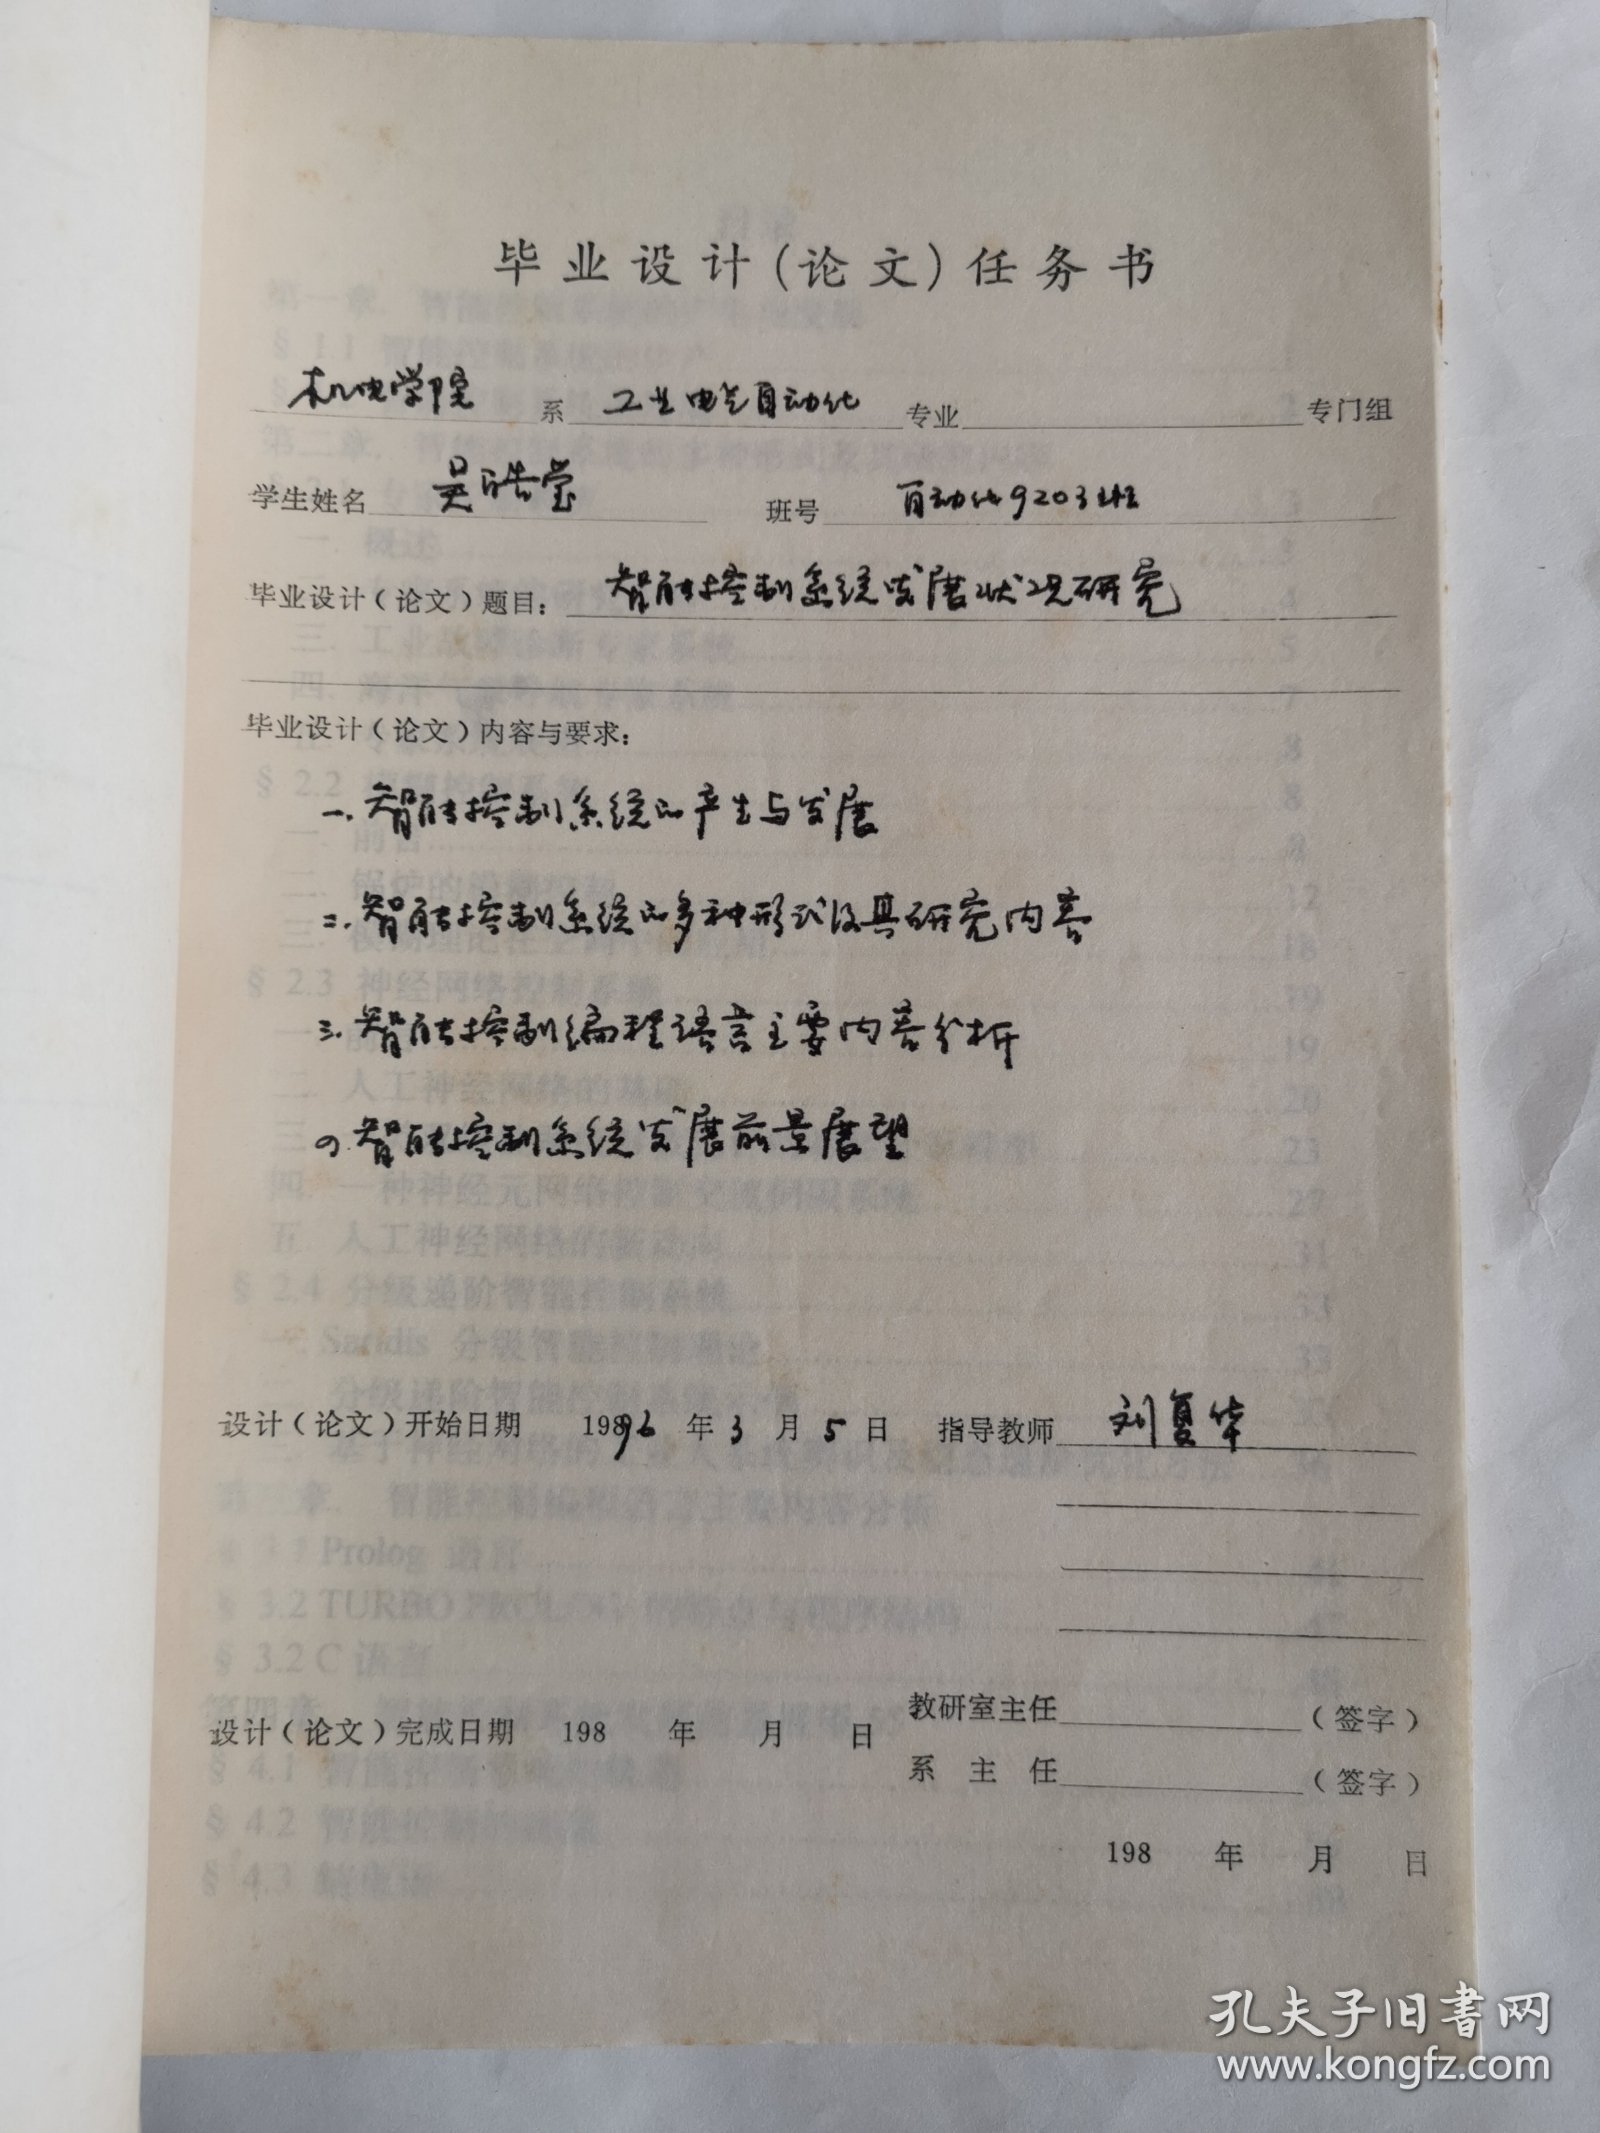 毕业设计（论文）任务书
机电学院 系 工业电气自动化 专业 专门组
学生姓名 吴皓莹 班号 自动化9203班
毕业设计（论文）题目： 智能控制系统发展状况研究
毕业设计（论文）内容与要求：
一. 智能控制系统的产生与发展
二. 智能控制系统的多种形式及其研究内容
三. 智能控制编程语言主要内容分析
四. 智能控制系统发展前景展望
设计（论文）开始日期 1996 年 3 月 5 日 指导教师 刘复华
教研室主任 （签字）
设计（论文）完成日期 198 年 月 日
系 主 任 （签字）
198 年 月 日
孔夫子旧书网
www.kongfz.com